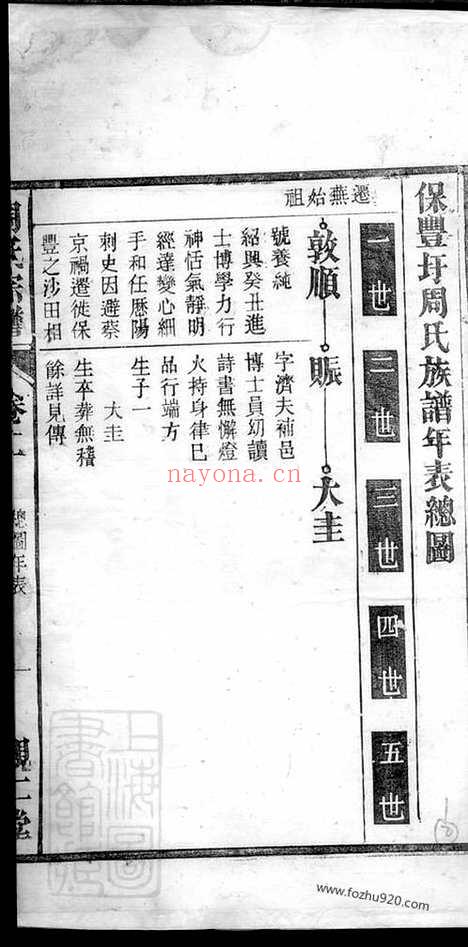 保豐圩周氏族譜年表總圖
一世 二世 三世 四世 五世
遷蕪始祖
敦順 賑 大圭
號養純
紹興癸丑進
士博學力行
神恬氣靜明
經達變心細
手和任歷陽
刺史因避蔡
京禍遷徙保
豐之沙田相
字濟夫補邑
博士員幼讀
詩書無懈燈
火持身律巳
品行端方
生子一
大圭
生卒葬無稽
餘詳見傳
周氏宗譜 卷二 總圖年表 一
上海圖書館藏
nayona.cn
www.fozhu920.com